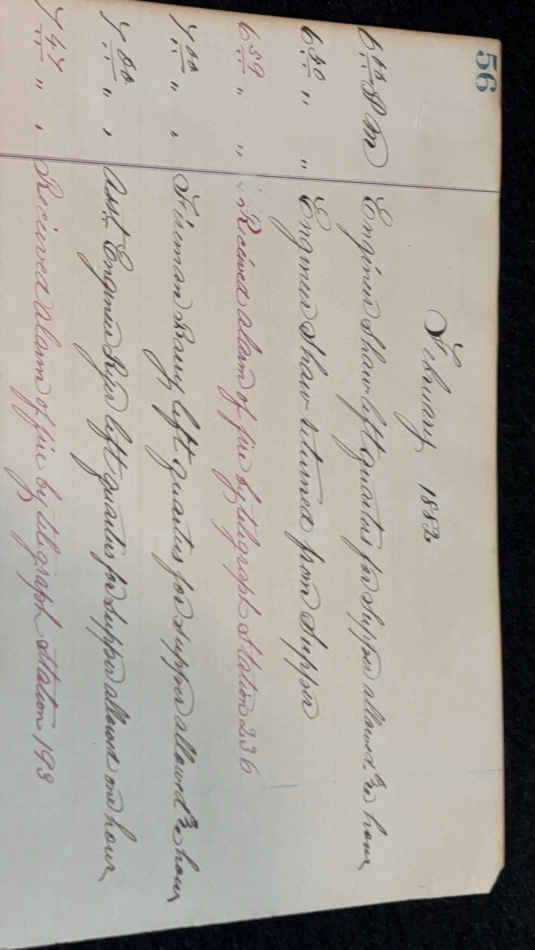 56
February 1882
6 00 P M Engineer Shaw left quarters for Supper allowed ½ hour
6 30 " " Engineer Shaw returned from Supper
6 39 " " Received alarm of fire by telegraph Station 236
7 00 " " Fireman left quarters for supper allowed ½ hour
7 00 " " Asst. Engineer left quarters for supper allowed one hour
7 47 " " Received alarm of fire by telegraph Station 193